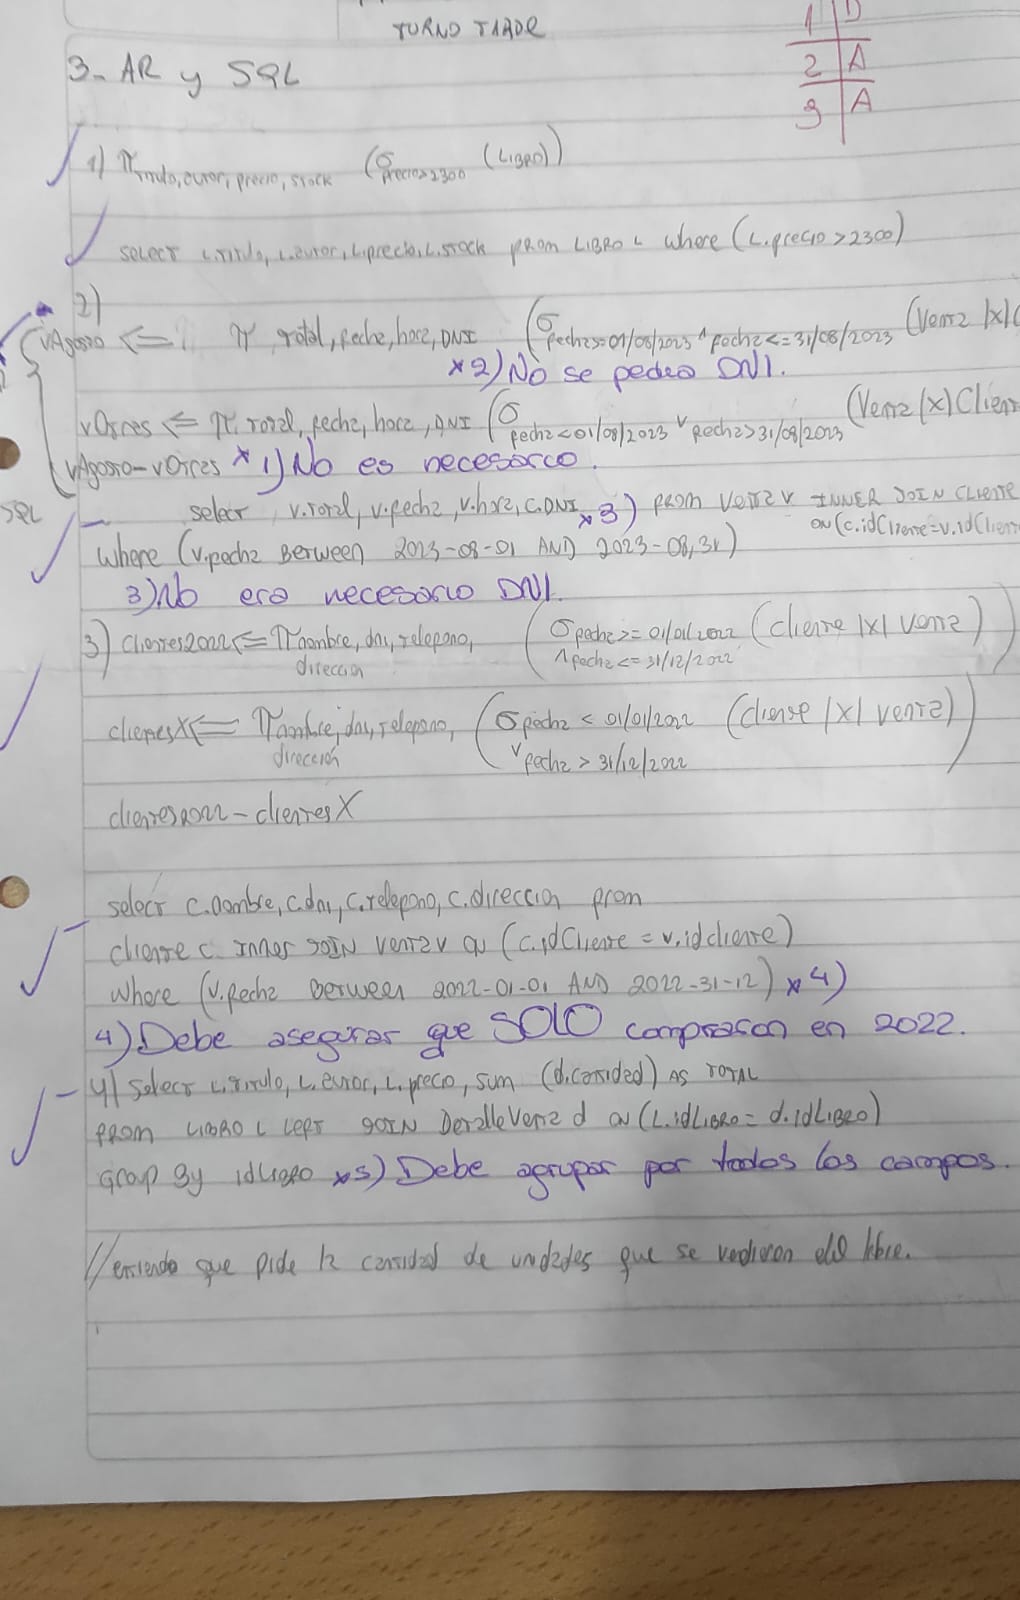 TURNO TARDE
1 | D
2 | A
3 | A
3- AR y SQL
1) π titulo, autor, precio, stock (σ precio>2300 (LIBRO))
select L.titulo, L.autor, L.precio, L.stock FROM LIBRO L where (L.precio >2300)
2)
vAgosto <= π total, fecha, hora, DNI (σ fecha>=01/08/2023 ^ fecha<=31/08/2023 (Venta |x| C
*2) No se pedia DNI.
vOtras <= π total, fecha, hora, DNI (σ fecha<01/08/2023 v fecha>31/08/2023 (Venta |x| Clien
vAgosto-vOtras *1) No es necesario.
SQL
select v.total, v.fecha, v.hora, c.DNI *3) FROM Venta v INNER JOIN Cliente
ON (c.idCliente=v.idClien
where (v.fecha Between 2023-08-01 AND 2023-08,31)
3) No era necesario DNI.
3) Clientes2022<= π nombre, dni, telefono, direccion (σ fecha>= 01/01/2022 ^ fecha<= 31/12/2022 (cliente |x| venta))
clientesX<= π nombre, dni, telefono, dirección (σ fecha < 01/01/2022 v fecha > 31/12/2022 (cliente |x| venta))
clientes2022 - clientesX
select c.nombre, c.dni, c.telefono, c.direccion from
cliente c inner JOIN venta v ON (c.idCliente = v.idcliente)
where (v.fecha Between 2022-01-01 AND 2022-31-12) *4)
4) Debe asegurar que SOLO compraron en 2022.
4) Select L.titulo, L.autor, L.precio, sum (d.cantidad) AS TOTAL
FROM LIBRO L LEFT JOIN DetalleVenta d ON (L.idLIBRO= d.IdLIBRO)
Group By idLIBRO *5) Debe agrupar por todos los campos.
//entiendo que pide la cantidad de unidades que se vendieron del libro.